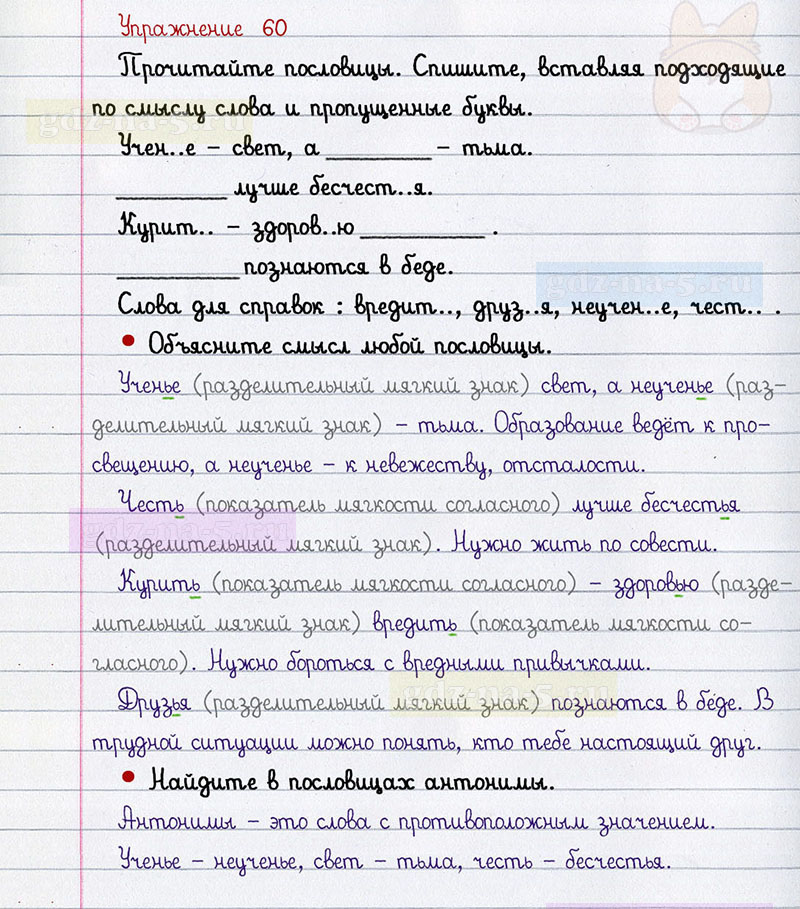 Упражнение 60
Прочитайте пословицы. Спишите, вставляя подходящие
по смыслу слова и пропущенные буквы.
Учен..е – свет, а ________ – тьма.
________ лучше бесчест..я.
Курит.. – здоров..ю _________ .
_________ познаются в беде.
Слова для справок : вредит.., друз..я, неучен..е, чест.. .
• Объясните смысл любой пословицы.
Ученье (разделительный мягкий знак) свет, а неученье (раз-
делительный мягкий знак) – тьма. Образование ведёт к про-
свещению, а неученье – к невежеству, отсталости.
Честь (показатель мягкости согласного) лучше бесчестья
(разделительный мягкий знак). Нужно жить по совести.
Курить (показатель мягкости согласного) – здоровью (разде-
лительный мягкий знак) вредить (показатель мягкости со-
гласного). Нужно бороться с вредными привычками.
Друзья (разделительный мягкий знак) познаются в беде. В
трудной ситуации можно понять, кто тебе настоящий друг.
• Найдите в пословицах антонимы.
Антонимы – это слова с противоположным значением.
Ученье – неученье, свет – тьма, честь – бесчестья.
gdz-na-5.ru
gdz-na-5.ru
gdz-na-5.ru
gdz-na-5.ru